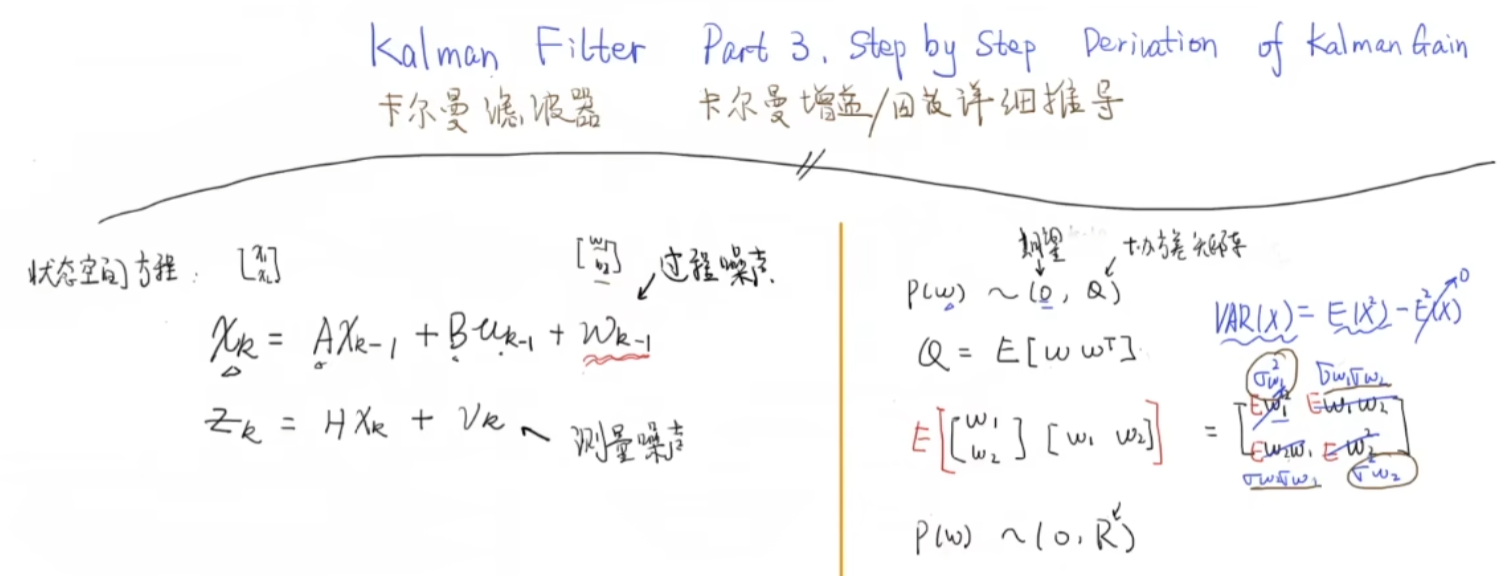 Kalman Filter Part 3. Step by Step Derivation of Kalman Gain
卡尔曼滤波器 卡尔曼增益/因数详细推导
状态空间方程: [x₁ x₂]
[w₁ w₂] 过程噪声.
X_k = A X_{k-1} + B u_{k-1} + w_{k-1}
Z_k = H X_k + V_k 测量噪声
期望 协方差矩阵
P(w) ~ (0, Q)
VAR(X) = E(X²) - E²(X) 0
Q = E[w wᵀ].
σw₁² σw₁σw₂
E[[w₁ w₂] [w₁ w₂]] = [Ew₁² Ew₁w₂
Ew₂w₁ Ew₂²]
σw₂σw₁ σw₂²
P(w) ~ (0, R)